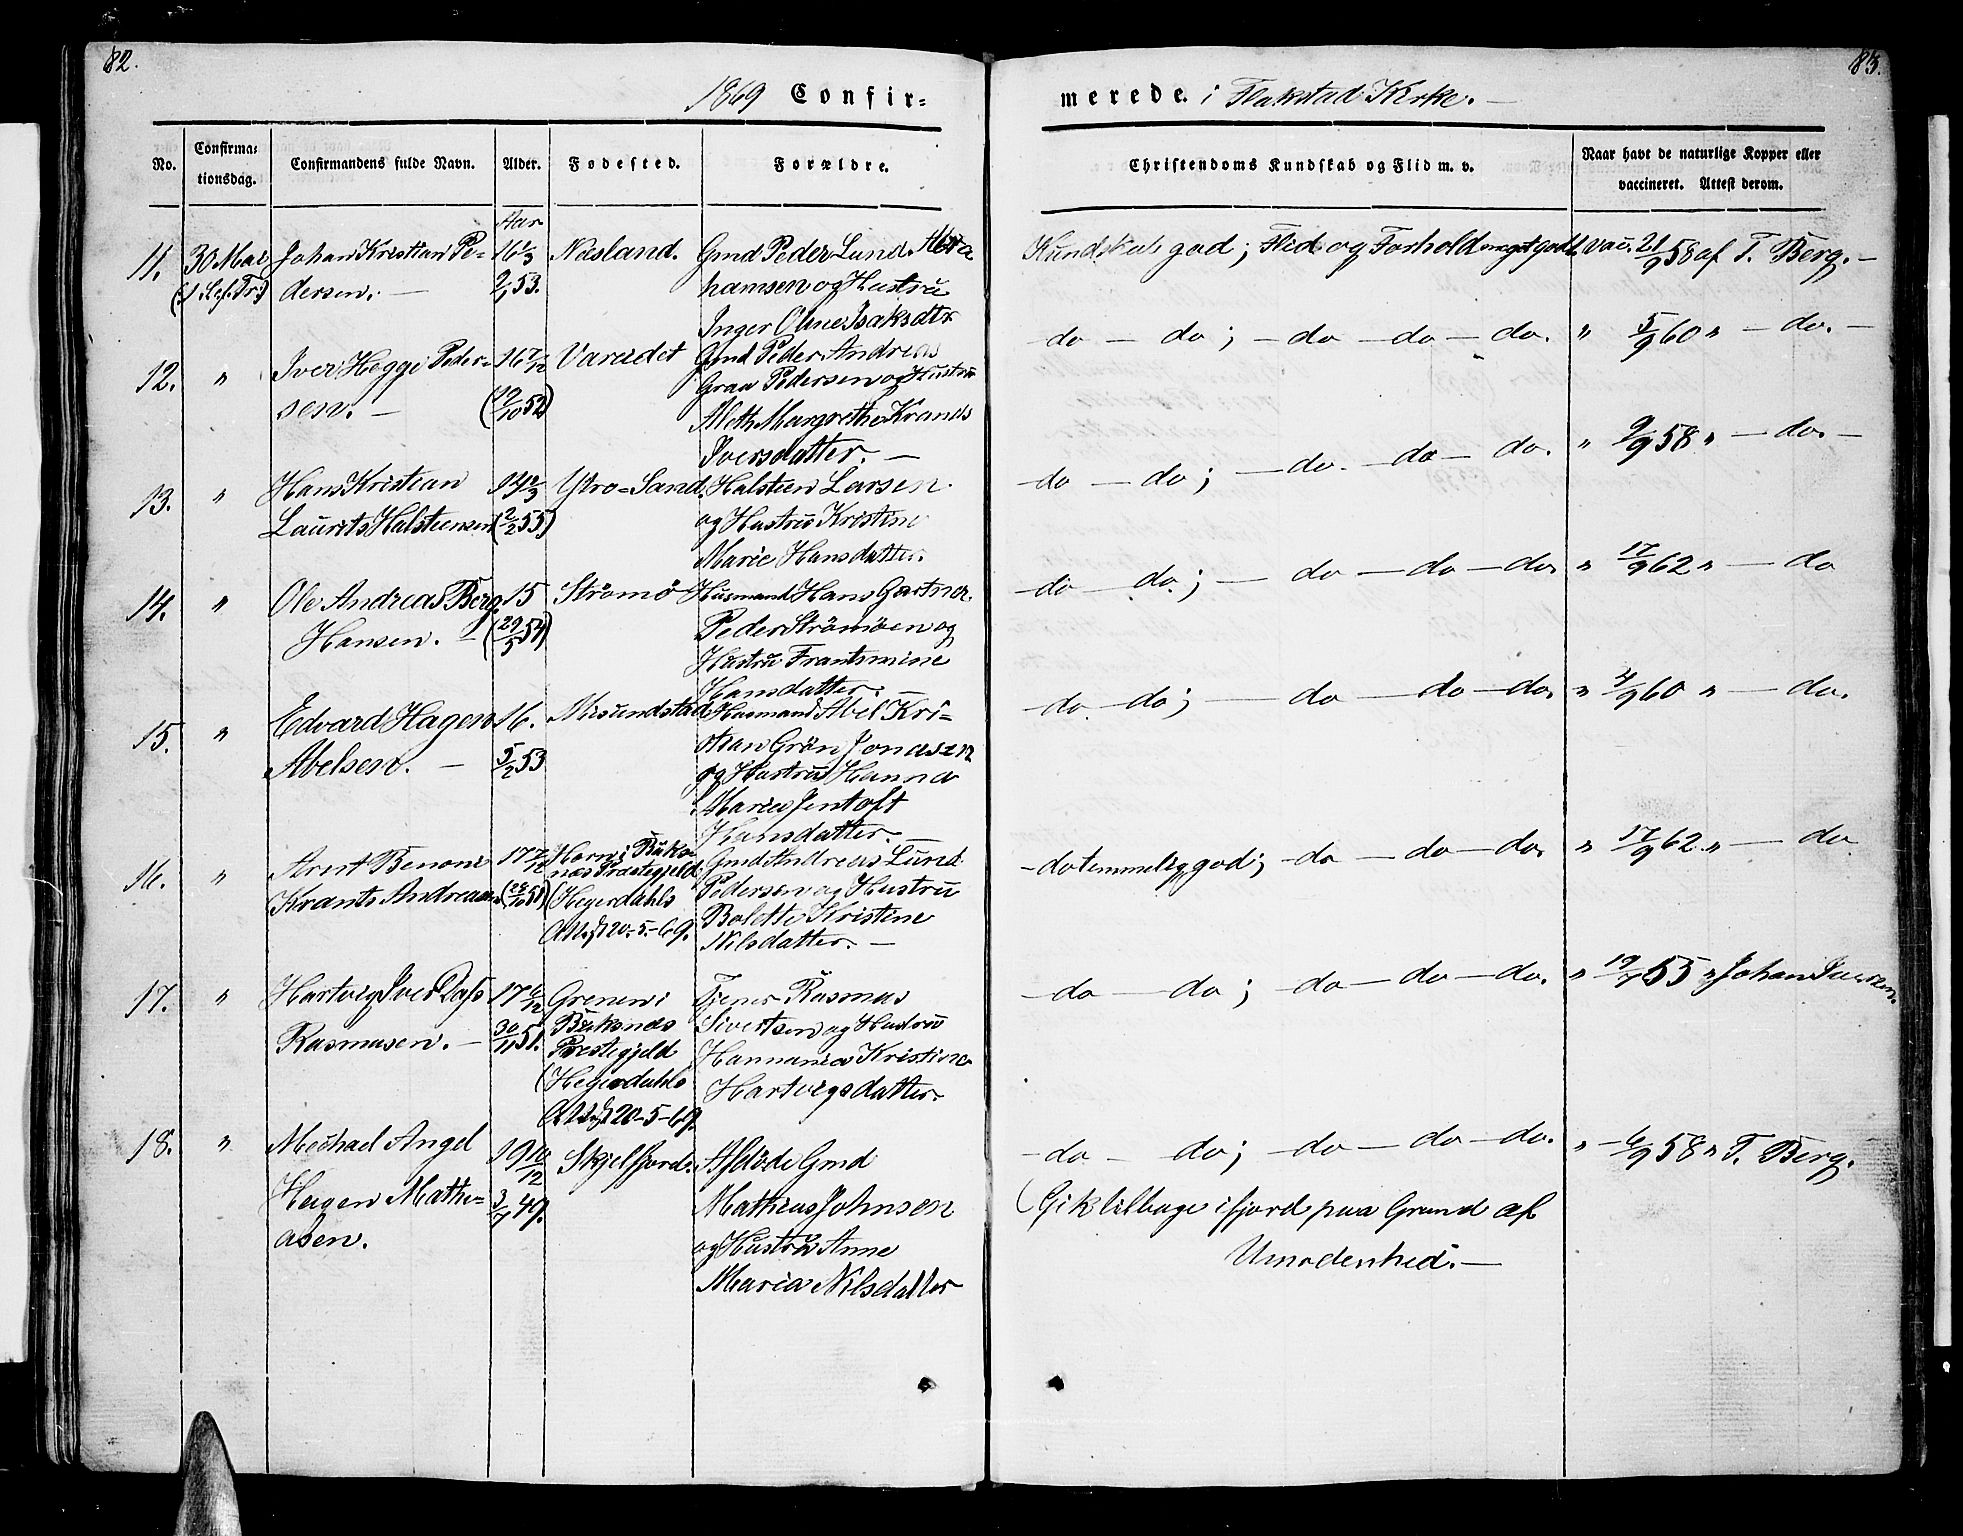 82.
1869 Confir=
No.
Confirma=
tionsdag.
Confirmandens fulde Navn.
Alder.
Fødested.
Forældre.
Aar
11.
30 Mai
(1 S. ef. Tr.)
Johan Kristian Pe-
dersen. —
16 1/3
2/1 53.
Næsland.
Gmd Peder Lund Abra
hamsen og Hustru
Inger Oline Isaksdtr
12.
"
Iver Hegge Peder-
sen. —
16 7/12
(19/10 52)
Vareidet
Gmd Peder Andreas
Graa Pedersen og Hustru
Aleth Margrethe Krands
Iversdatter. —
13.
"
Hans Kristian
Laurits Halsteensen
14 1/3
(2/2 55)
Ytre-Sand.
Halsten Larsen
og Hustru Kristine
Marie Hansdatter.
14.
"
Ole Andreas Berg
Hansen. —
15
(29/5 54)
Strømø
Husmand Hans Gartner
Peder Strømøen og
Hustru Frantsmine
Hansdatter.
15.
"
Edvard Hagen
Abelsen. —
16.
5/2 53
Nusundstad
Husmand Abel Kri-
stian Grøn Jonassen
og Hustru Hanna
Maries Jentoft
Hansdatter. —
16.
"
Arnt Benoni
Krants Andreasen
17 7/12
(28/10 51)
Horn i Buks-
næs Præstegjeld
(Heyerdahls
Att. af 20-5-69.
Gmd Andreas Lund
Pedersen og Hustru
Bolette Kristine
Nilsdatter. —
17.
"
Hartvig Iver Dass
Rasmusen. —
17 6/12
30/11 51.
Grenen i
Buksnæs
Præstegjeld
(Heyerdahls
Att. af 20-5-69.
Tjener Rasmus
Sivertsen og Hustru
Hannania Kristine
Hartvigsdatter.
18.
"
Mechael Angel
Hagen Mathi-
asen.
19 10/12
3/7 49.
Skjelfjord.
Afdøde Gmd
Mathias Johnsen
og Hustru Anne
Maria Nilsdatter
83.
merede. i Flakstad Kirke. —
Christendoms Kundskab og Flid m. v.
Naar havt de naturlige Kopper eller
vaccineret. Attest derom.
Kundskab god; Flid og Forhold meget godt. vac. 21/9 58 af T. Berg. —
do — do; — do — do — do. " 5/9 60 " — do. —
do — do; — do. — do — do. " 9/9 58 " — do. —
do — do.; — do — do — do. " 17/9 62 " — do
do — do; — do — do — do. " 4/9 60 " — do.
- do temmelig god; — do — do — do. " 17/9 62 " — do
— do — do; — do — do — do. " 19/7 55 " Johan Iversen.
- do — do; — do — do — do. " 6/9 58 " T. Berg.
(Gik tilbage ifjord paa Grund af
Umodenhed. —